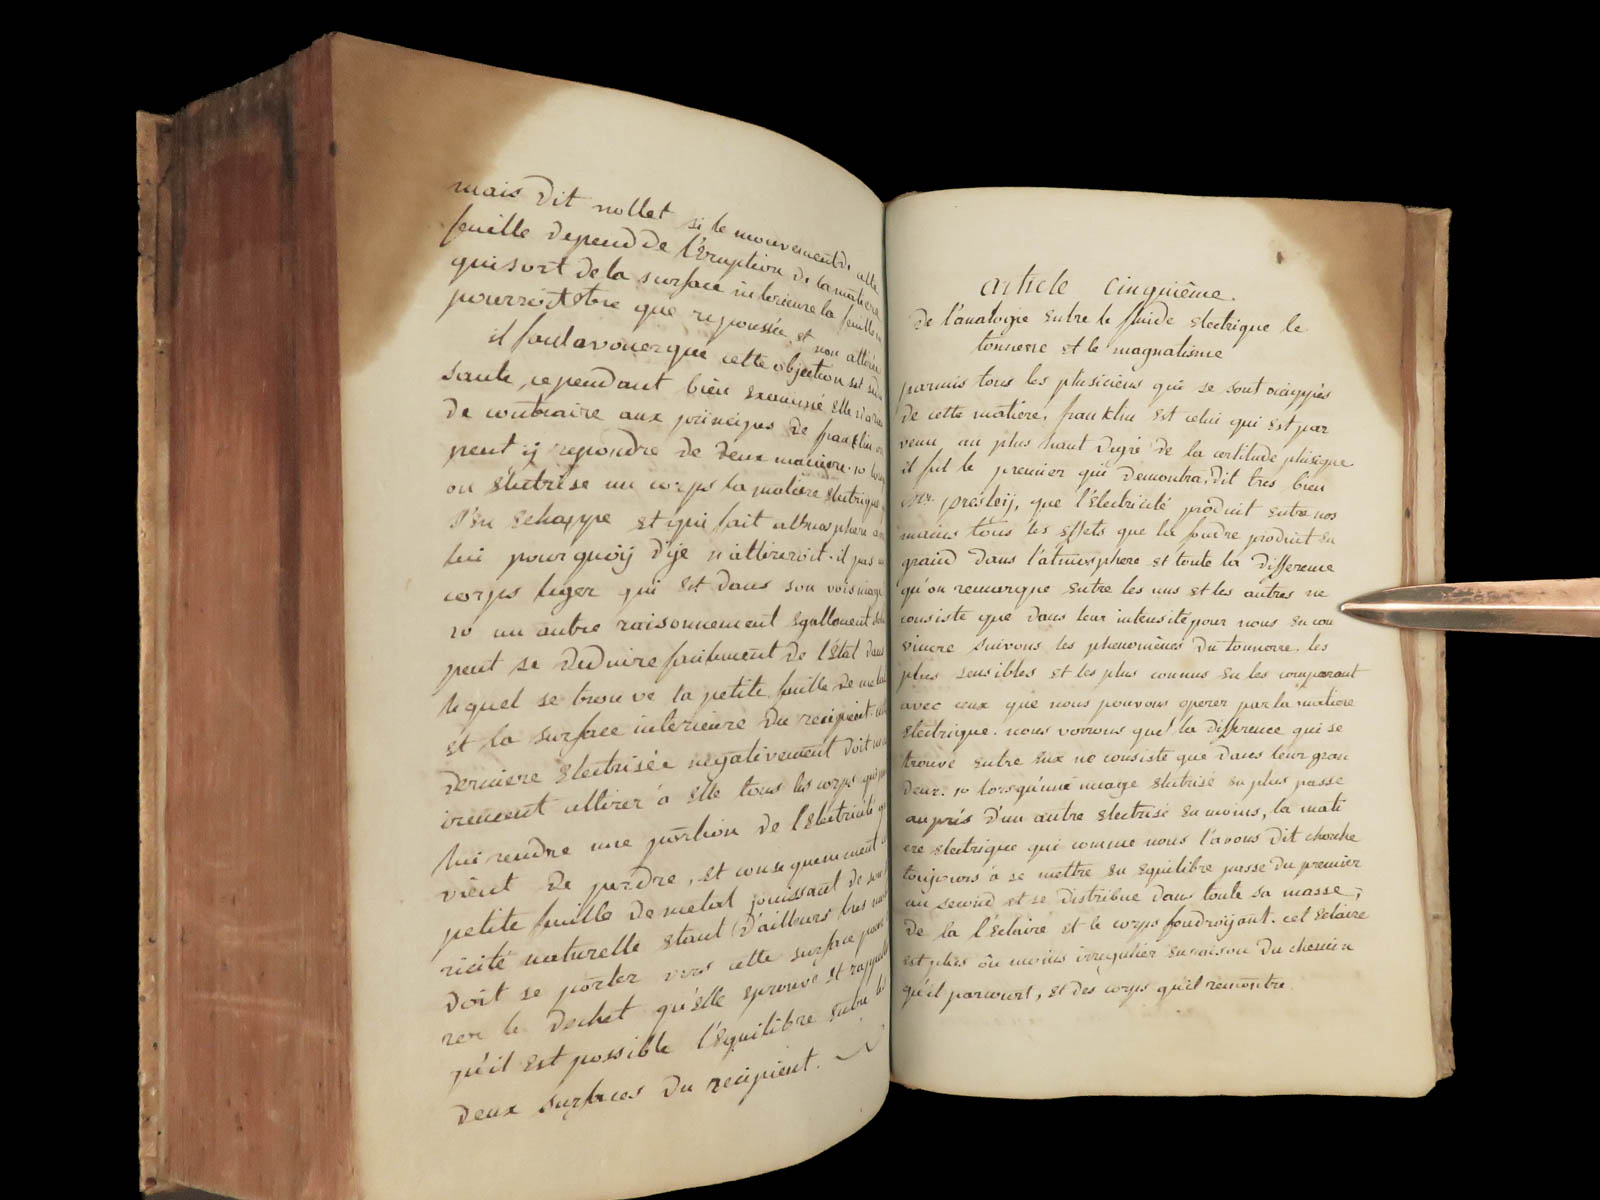 mais dit nollet si le mouvement de cette
feuille depend de l'Eruption de la matiere
qui sort de la surface interieure la feuille ne
pourroit Etre que repoussée, et non attirée
il faut avouer que cette objection est sedui
sante, cependant bien Examiné Elle n'a rien
de contraire aux principes de franklin on
peut ij repondre de deux maniere. 1o lorsqu
on Electrise un corps la matiere Electrique
s'en Echappe Et qui fait athmosphere a
lui pourquoij d'ije n'attireroit-il pas un
corps leger qui Est dans son voisinage
2o un autre raisonnement Egallement
peut se deduire facilement de l'Etat dans
lequel se trouve la petite feuille de metal
et la surface interieure du recipient. cette
derniere Electrisée negativement doit
attirer à Elle tous les corps qui
lui rendre une portion de l'Electricité qu
vient de perdre, Et consequemment la
petite feuille de metal jouissant de son
ricité naturelle Etant d'ailleurs tres
doit se porter vers cette surface pour
rer le dechet qu'Elle Eprouve Et
qu'il Est possible l'Equilibre Entre les
deux surfaces du recipient.
article cinquième.
De l'analogie Entre le fluide Electrique le
tonnerre Et le magnatisme
parmis tous les phisiciens qui se sont occuppés
de cette matière, franklin Est celui qui Est par
venu au plus haut degré de la certitude phisique
il fut le premier qui demontra, dit tres bien
Mr. presleij, que l'Electricité produit Entre nos
mains tous les Effets que la foudre produit En
grand dans l'atmosphere Et toute la difference
qu'on remarque Entre les uns Et les autres ne
consiste que dans leur intensité pour nous En con
vincre suivons les phenomènes du tonnerre les
plus sensibles Et les plus connus En les comparant
avec ceux que nous pouvons operer par la matiere
Electrique. nous verrons que la difference qui se
trouve Entre Eux ne consiste que dans leur gran
deur. 1o lorsqu'une nuage Electrisé En plus passe
auprés d'un autre Electrisé En moins, la mati
ere Electrique qui comme nous l'avons dit cherche
toujours à se mettre En Equilibre passe du premier
au second Et se distribue dans toute sa masse;
de la l'Eclaire Et le corps foudroijant. cet Eclaire
Est plus ou moins irregulier En raison du chemin
qu'il parcourt, Et des corps qu'il rencontre.